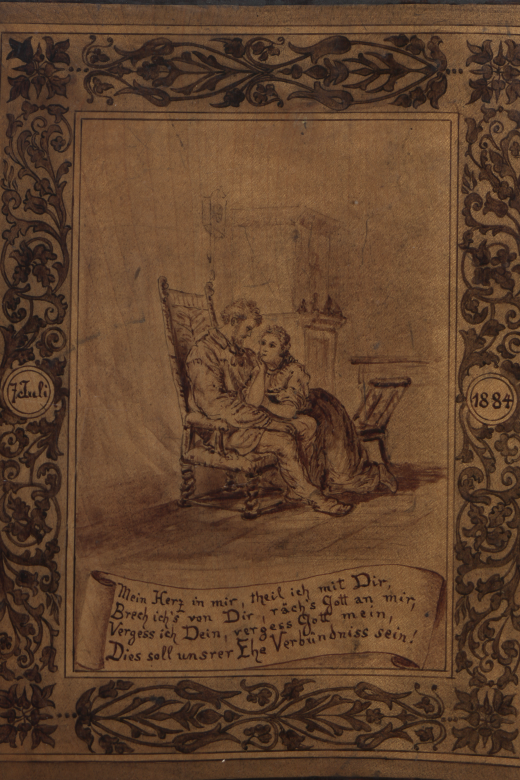 7 Juli
1884
Mein Herz in mir, theil ich mit Dir,
Brech ich's von Dir, räch's Gott an mir,
Vergess ich Dein, vergess Gott mein,
Dies soll unsrer Ehe Verbündniss sein!